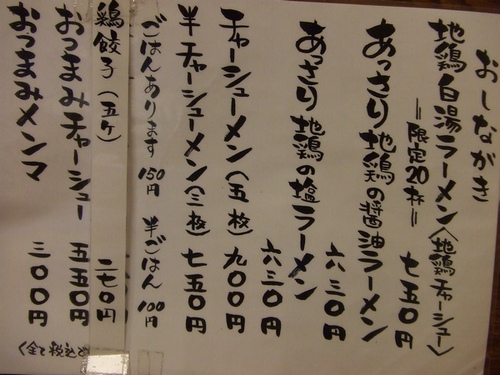 おしながき
地鶏白湯ラーメン(地鶏チャーシュー)
＝限定20杯＝
七五〇円
あっさり地鶏の醤油ラーメン
六三〇円
あっさり地鶏の塩ラーメン
六三〇円
チャーシューメン(五枚)九〇〇円
半チャーシューメン(三枚)七五〇円
ごはんあります 150円 半ごはん 100円
鶏餃子(五ケ) 二七〇円
おつまみチャーシュー 五五〇円
おつまみメンマ 三〇〇円
(全て税込